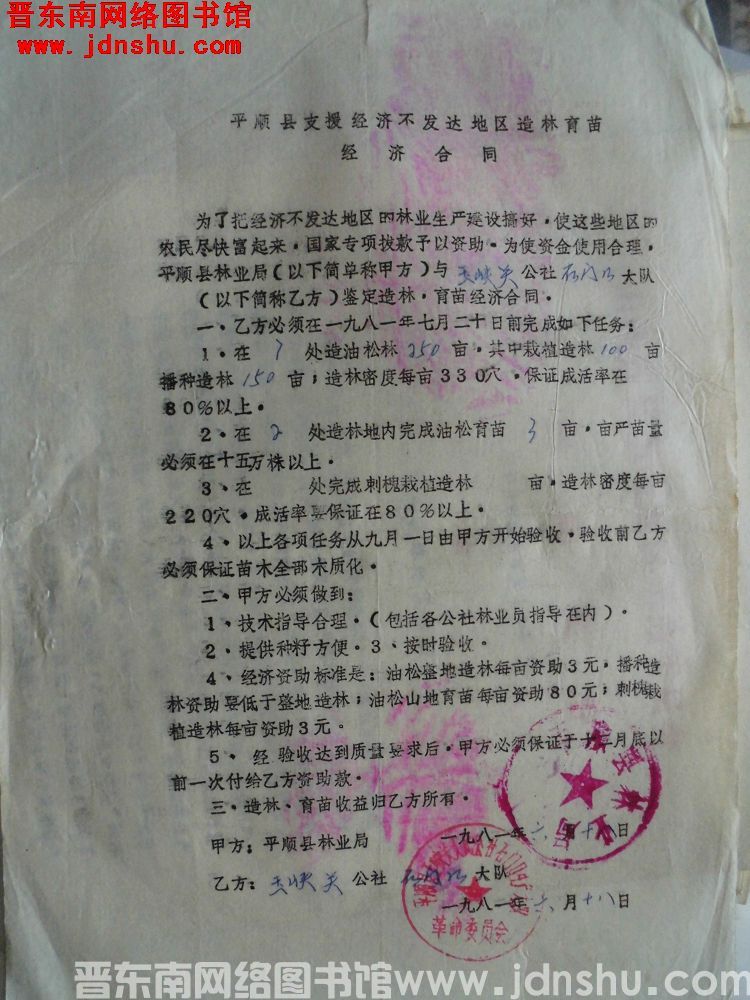 晋东南网络图书馆
www.jdnshu.com
平顺县支援经济不发达地区造林育苗
经济合同
为了把经济不发达地区的林业生产建设搞好，使这些地区的
农民尽快富起来，国家专项拨款予以资助。为使资金使用合理，
平顺县林业局（以下简单称甲方）与玉峡关公社 大队
（以下简称乙方）鉴定造林，育苗经济合同。
一、乙方必须在一九八一年七月二十日前完成如下任务：
1、在 7 处造油松林 250 亩，其中栽植造林 100 亩
播种造林 150 亩；造林密度每亩330穴，保证成活率在
80%以上。
2、在 2 处造林地内完成油松育苗 3 亩，亩产苗量
必须在十五万株以上。
3、在 处完成刺槐栽植造林 亩，造林密度每亩
220穴，成活率要保证在80%以上。
4、以上各项任务从九月一日由甲方开始验收，验收前乙方
必须保证苗木全部木质化。
二、甲方必须做到：
1、技术指导合理。（包括各公社林业员指导在内）。
2、提供种籽方便。3、按时验收。
4、经济资助标准是：油松整地造林每亩资助3元，播种造
林资助要低于整地造林；油松山地育苗每亩资助80元；刺槐栽
植造林每亩资助3元。
5、经验收达到质量要求后，甲方必须保证于十二月底以
前一次付给乙方资助款。
三、造林、育苗收益归乙方所有。
甲方：平顺县林业局 一九八一年六月十八日
乙方：玉峡关公社 大队
一九八一年六月十八日
县林业局
革命委员会
晋东南网络图书馆www.jdnshu.com